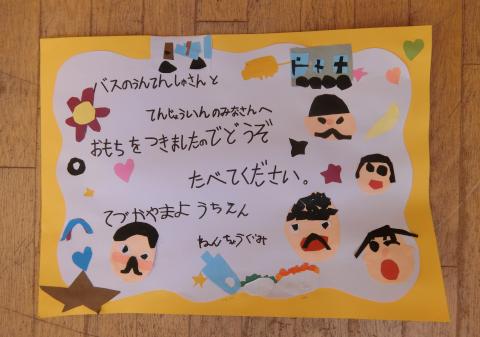 バスのうんてんしゅさんと
てんじょういんのみなさんへ
おもちをつきましたのでどうぞ
たべてください。
てづかやまようちえん
ねんちょうぐみ